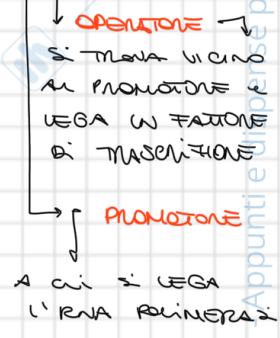 OPERATORE
SI TROVA VICINO
AL PROMOTORE E
LEGA UN FATTORE
DI TRASCRIZIONE
PROMOTORE
A CUI SI LEGA
L'RNA POLIMERAS
Appunti e dispense p